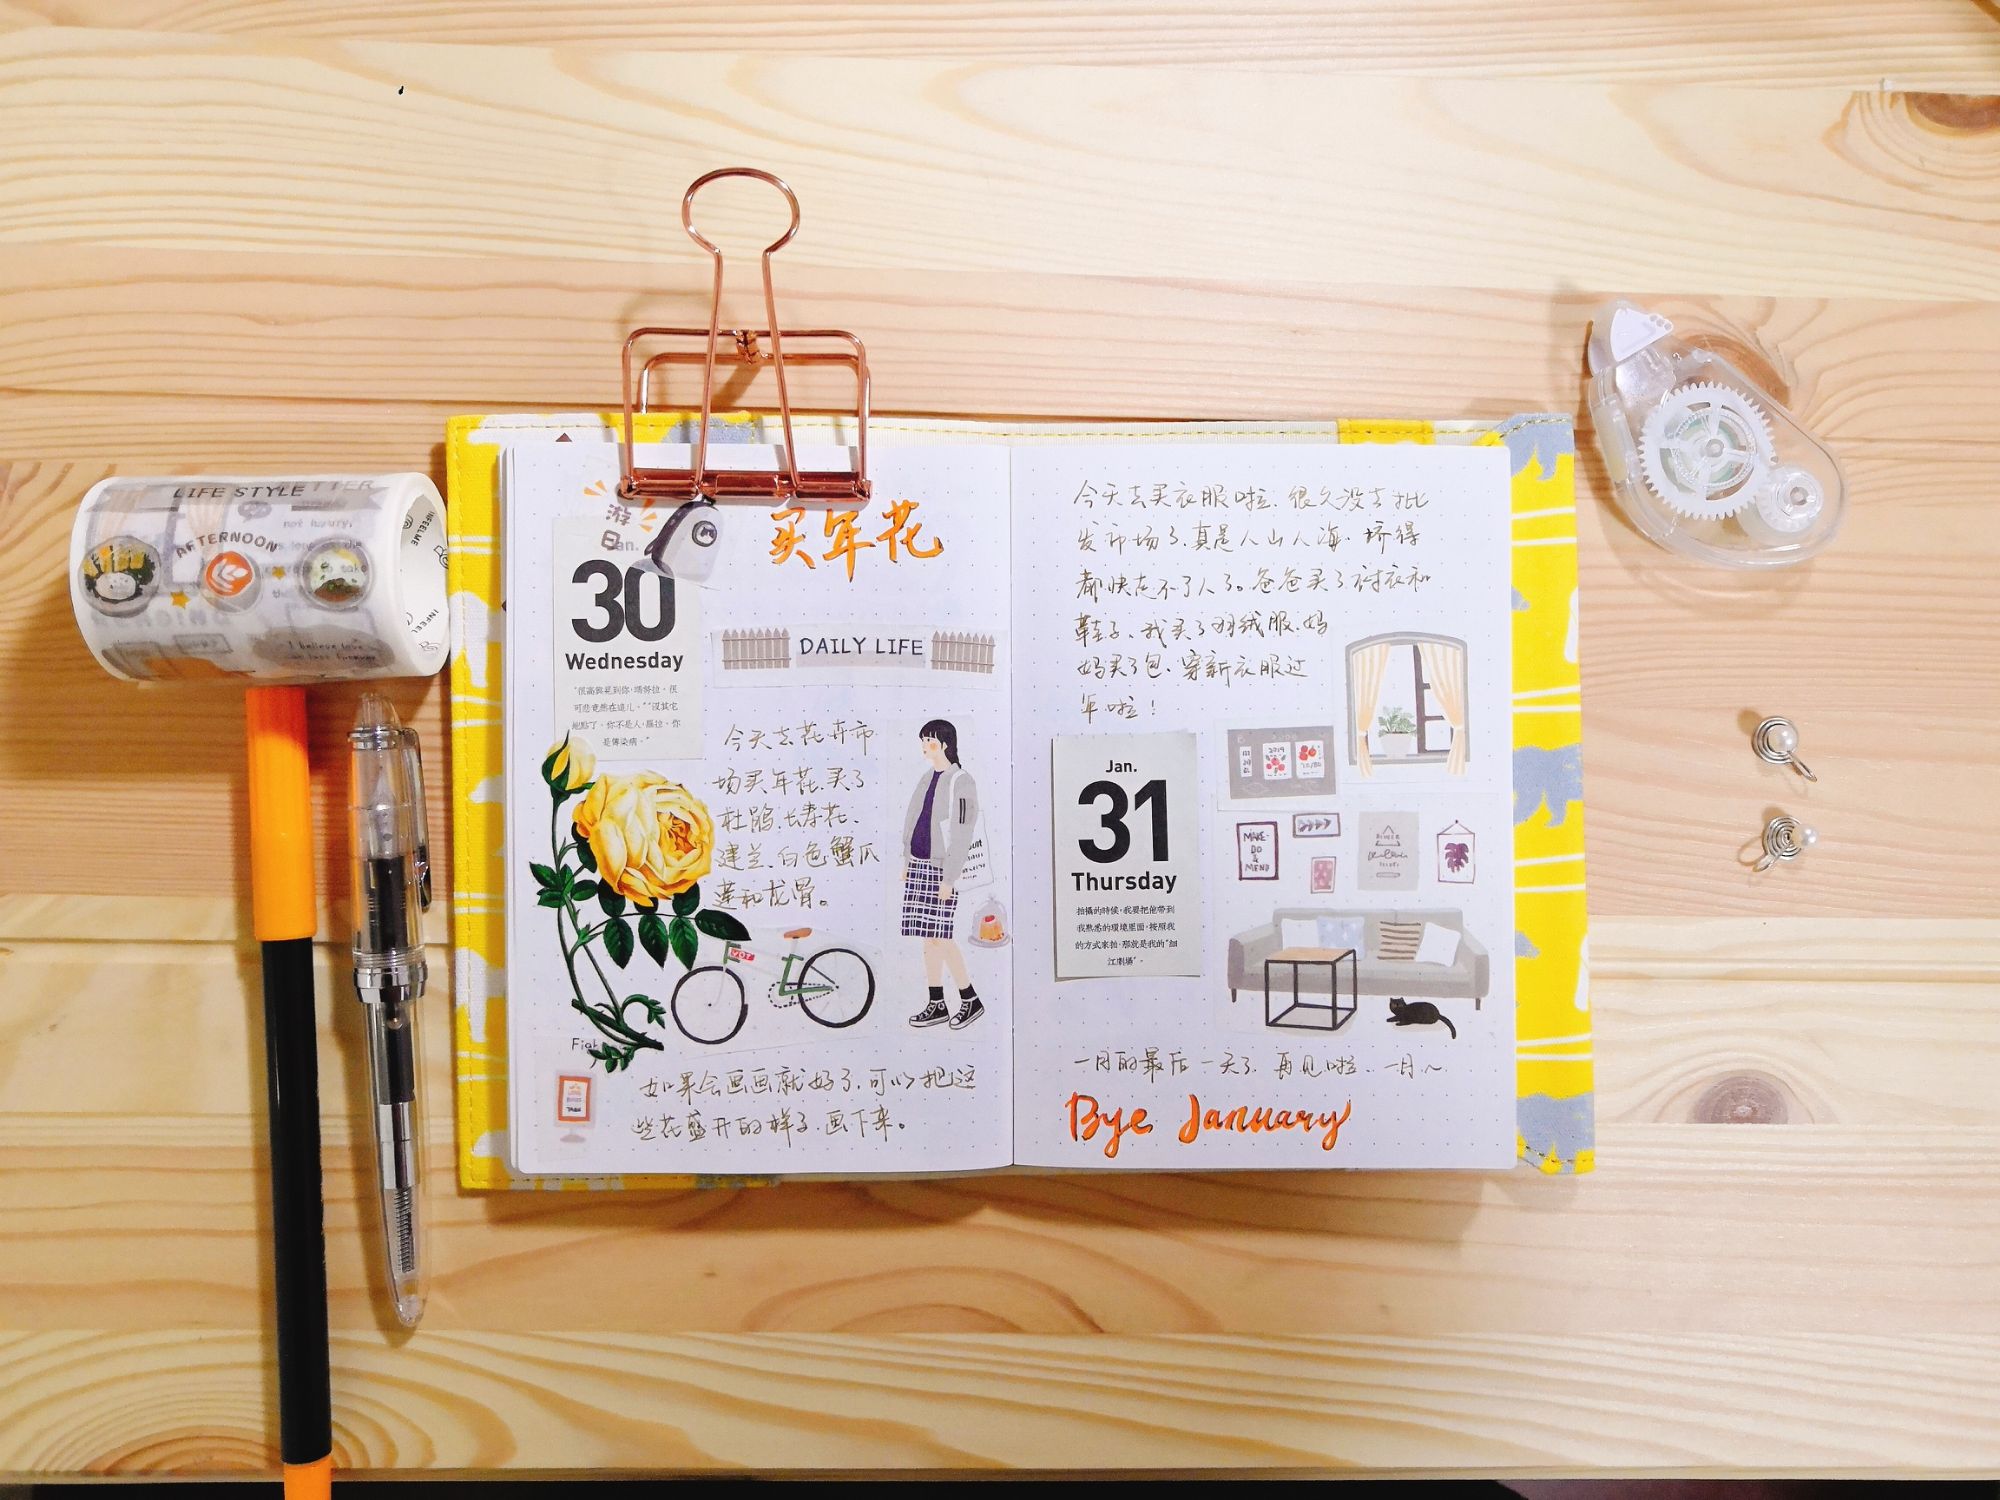 LIFE STYLE
AFTERNOON
not luxury,
I believe love
can last forever
INFEELME
游
日
买年花
Jan.
30
Wednesday
DAILY LIFE
"很高興見到你,瑪努拉。很
是傳染病。"
今天去花卉市
场买年花,买了
杜鹃、长寿花、
建兰、白色蟹爪
莲和龙骨。
VOT
如果会画画就好了,可以把这
些花盛开的样子,画下来。
今天去买衣服啦,很久没去批
发市场了,真是人山人海,挤得
都快走不了人了。爸爸买了衬衣和
鞋子,我买了羽绒服,妈
妈买了包,穿新衣服过
年啦!
2019
MAKE-
DO &
MEND
Jan.
31
Thursday
拍攝的時候,我要把他帶到
我熟悉的環境裏面,按照我
的方式來拍,那就是我的"細
江劇場"。
一月的最后一天了,再见啦,一月~
Bye January